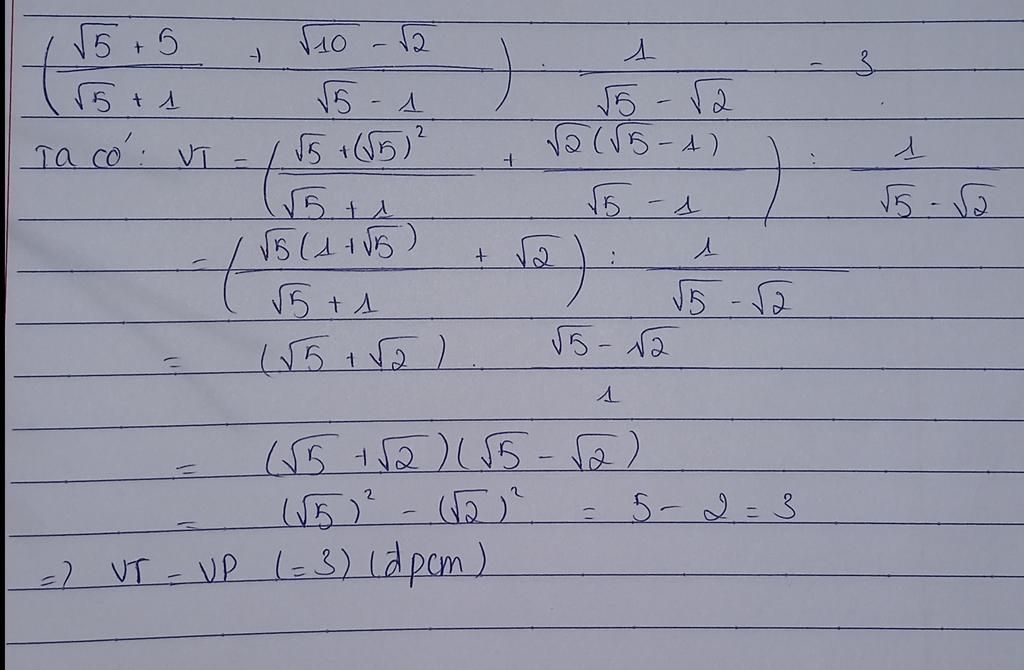 (√5 + 5 / √5 + 1 + √10 - √2 / √5 - 1) . 1 / √5 - √2 = 3
Ta có: VT = (√5 + (√5)² / √5 + 1 + √2(√5 - 1) / √5 - 1) : 1 / √5 - √2
= (√5(1 + √5) / √5 + 1 + √2) : 1 / √5 - √2
= (√5 + √2) . √5 - √2 / 1
= (√5 + √2)(√5 - √2)
= (√5)² - (√2)² = 5 - 2 = 3
=> VT = VP (=3) (dpcm)